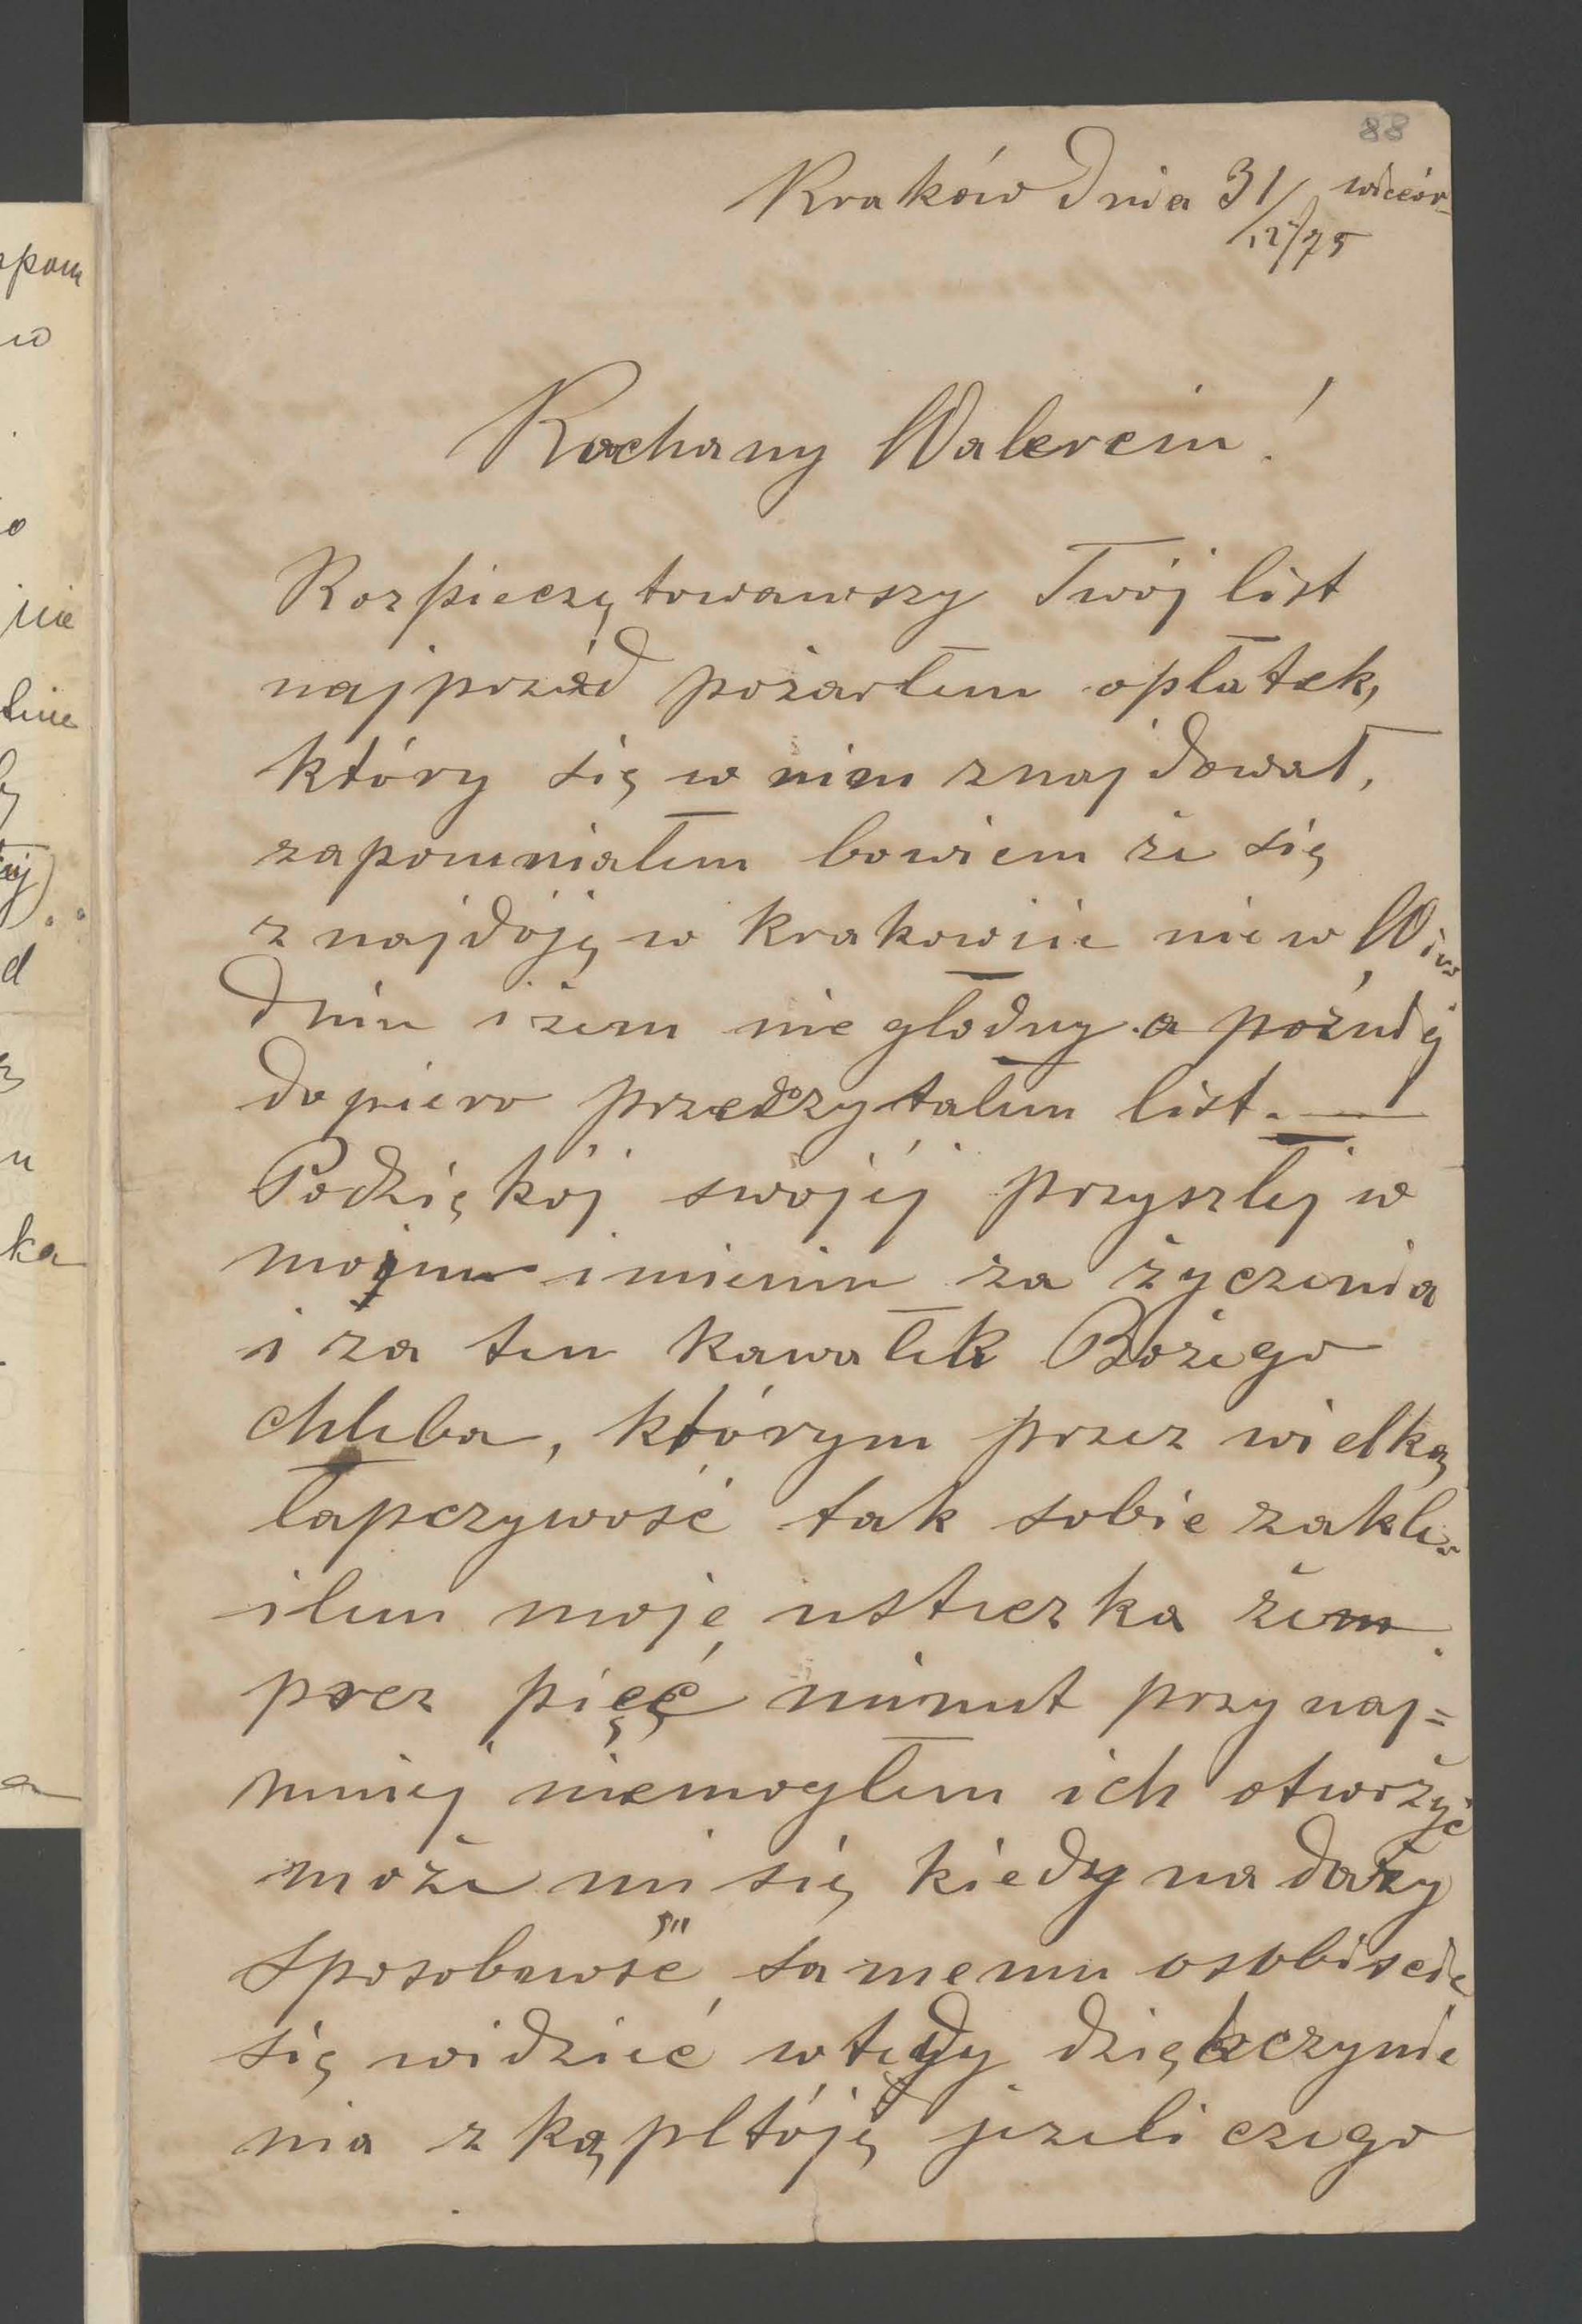 88
Kraków dnia 31/12/75 wieczór
Kochany Walerciu!
Rozpieczętowawszy Twój list
najprzód pożarłem opłatek,
który się w nim znajdował,
zapomniałem bowiem że się
znajdóję w Krakowie nie w Wie
dniu i żem nie głodny a późniéj
dopiero przeczytałem list. —
Podziękój swojéj przyszłej w
mojem imieniu za życzenia
i za ten kawałek Bożego
chleba, którym przez wielką
łapczywość tak sobie zakle
iłem moje usteczka żem
przez pięć minut przynaj=
mniej niemogłem ich otworzyć
może mi się kiedy nadarzy
sposobność samemu osobiście
się widzieć wtedy dziękczynie
nia z kąpltóję jeżeli czego